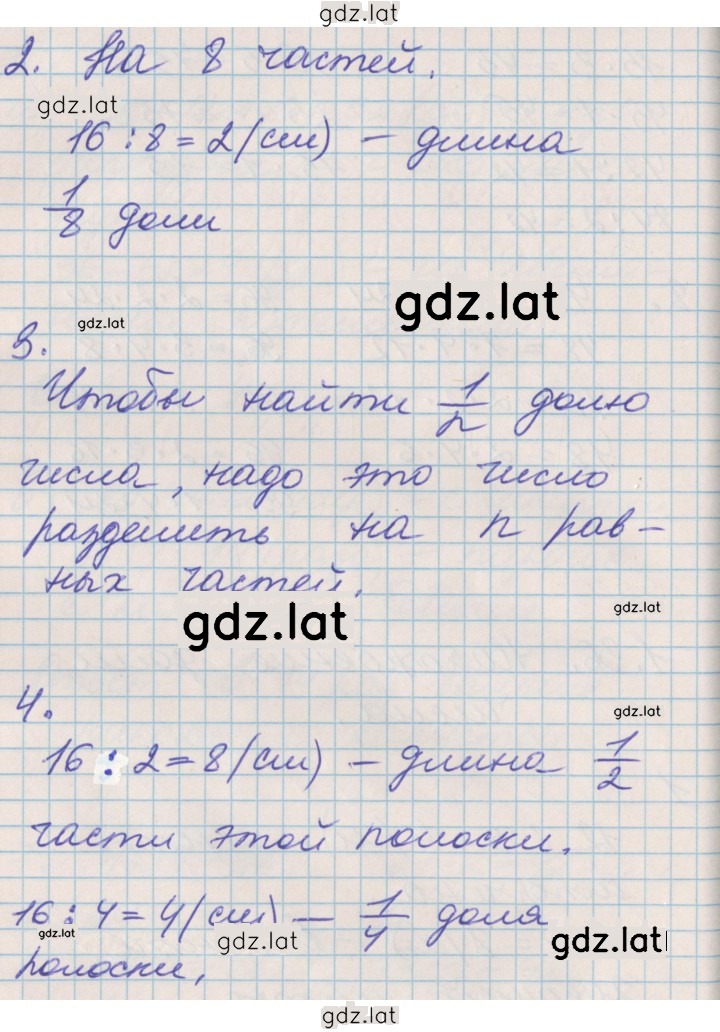 gdz.lat
2. На 8 частей.
gdz.lat
16 : 8 = 2 (см) – длина
1/8 доли
gdz.lat
gdz.lat
3.
Чтобы найти 1/n долю
числа, надо это число
разделить на n рав–
ных частей.
gdz.lat
gdz.lat
4.
gdz.lat
16 : 2 = 8 (см) – длина 1/2
части этой полоски.
16 : 4 = 4 (см) – 1/4 доля
gdz.lat
gdz.lat
gdz.lat
полоски,
gdz.lat